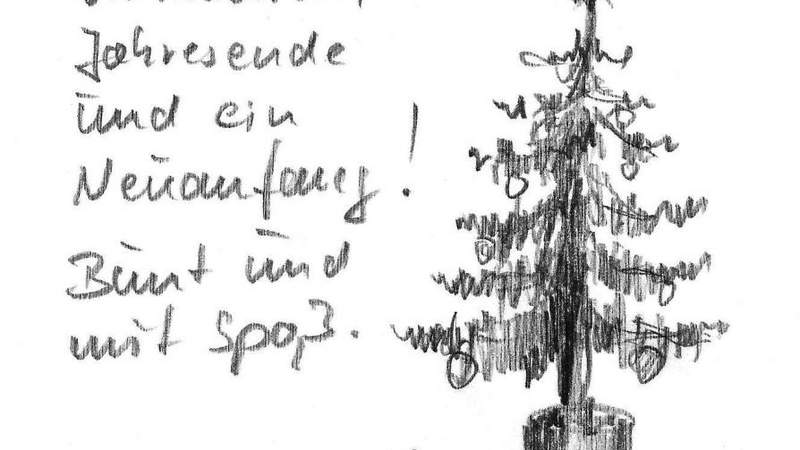 Jahresende
und ein
Neuanfang!
Bunt und
mit Spaß.